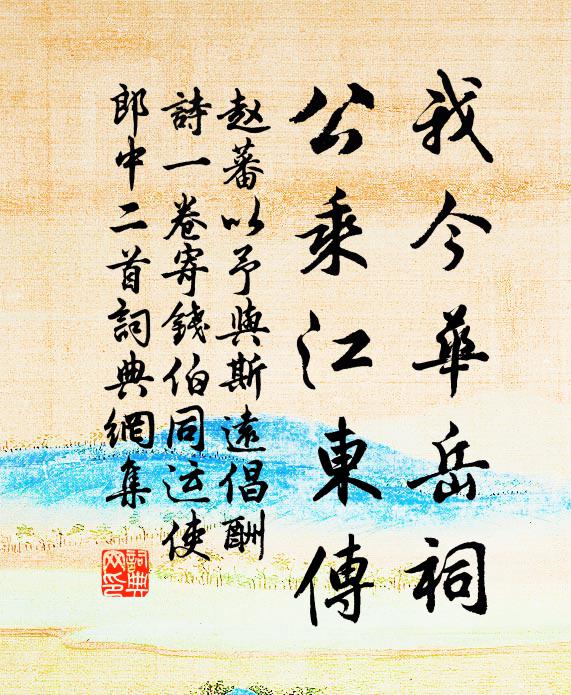 我今華岳祠
公乘江東傳
赵蕃以予與斯遠倡酬
詩一卷寄錢伯同运使
郎中二首詞典網集
詞典
网印